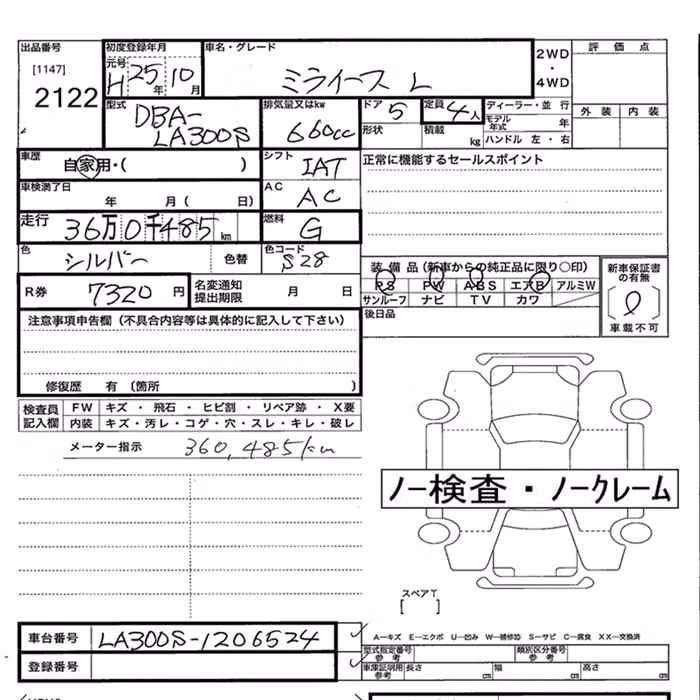 出品番号 初度登録年月 車名・グレード 2WD・4WD 評価点
[1147] 元号 H 25年 10月 ミライース L
2122 外装 内装
型式 DBA-LA300S 排気量又はkw 660cc ドア 5 定員 4人 ディーラー・並行
モデル年式 年
形状 積載 kg ハンドル 左・右
車歴 自家用・( ) シフト IAT 正常に機能するセールスポイント
車検満了日 年 月( 日) AC AC
走行 36万0千485km 燃料 G
色 シルバー 色替 色コード S28
装備品(新車からの純正品に限り〇印) 新車保証書の有無
PS PW ABS エアB アルミW
サンルーフ ナビ TV カワ
車載不可
R券 7320円 名変通知提出期限 月 日 後日品
注意事項申告欄(不具合内容等は具体的に記入して下さい)
修復歴 有(箇所 )
検査員記入欄 FW キズ・飛石・ヒビ割・リペア跡・X要
内装 キズ・汚レ・コゲ・穴・スレ・キレ・破レ
メーター指示 360,485km
ノー検査・ノークレーム
スペアT
[ ]
車台番号 LA300S-1206524
A―キズ E―エクボ U―凹み W―補修跡 S―サビ C―腐食 XX―交換済
登録番号 型式指定番号 参考 類別区分番号 参考
車庫証明用参考 長さ cm 幅 cm 高さ cm